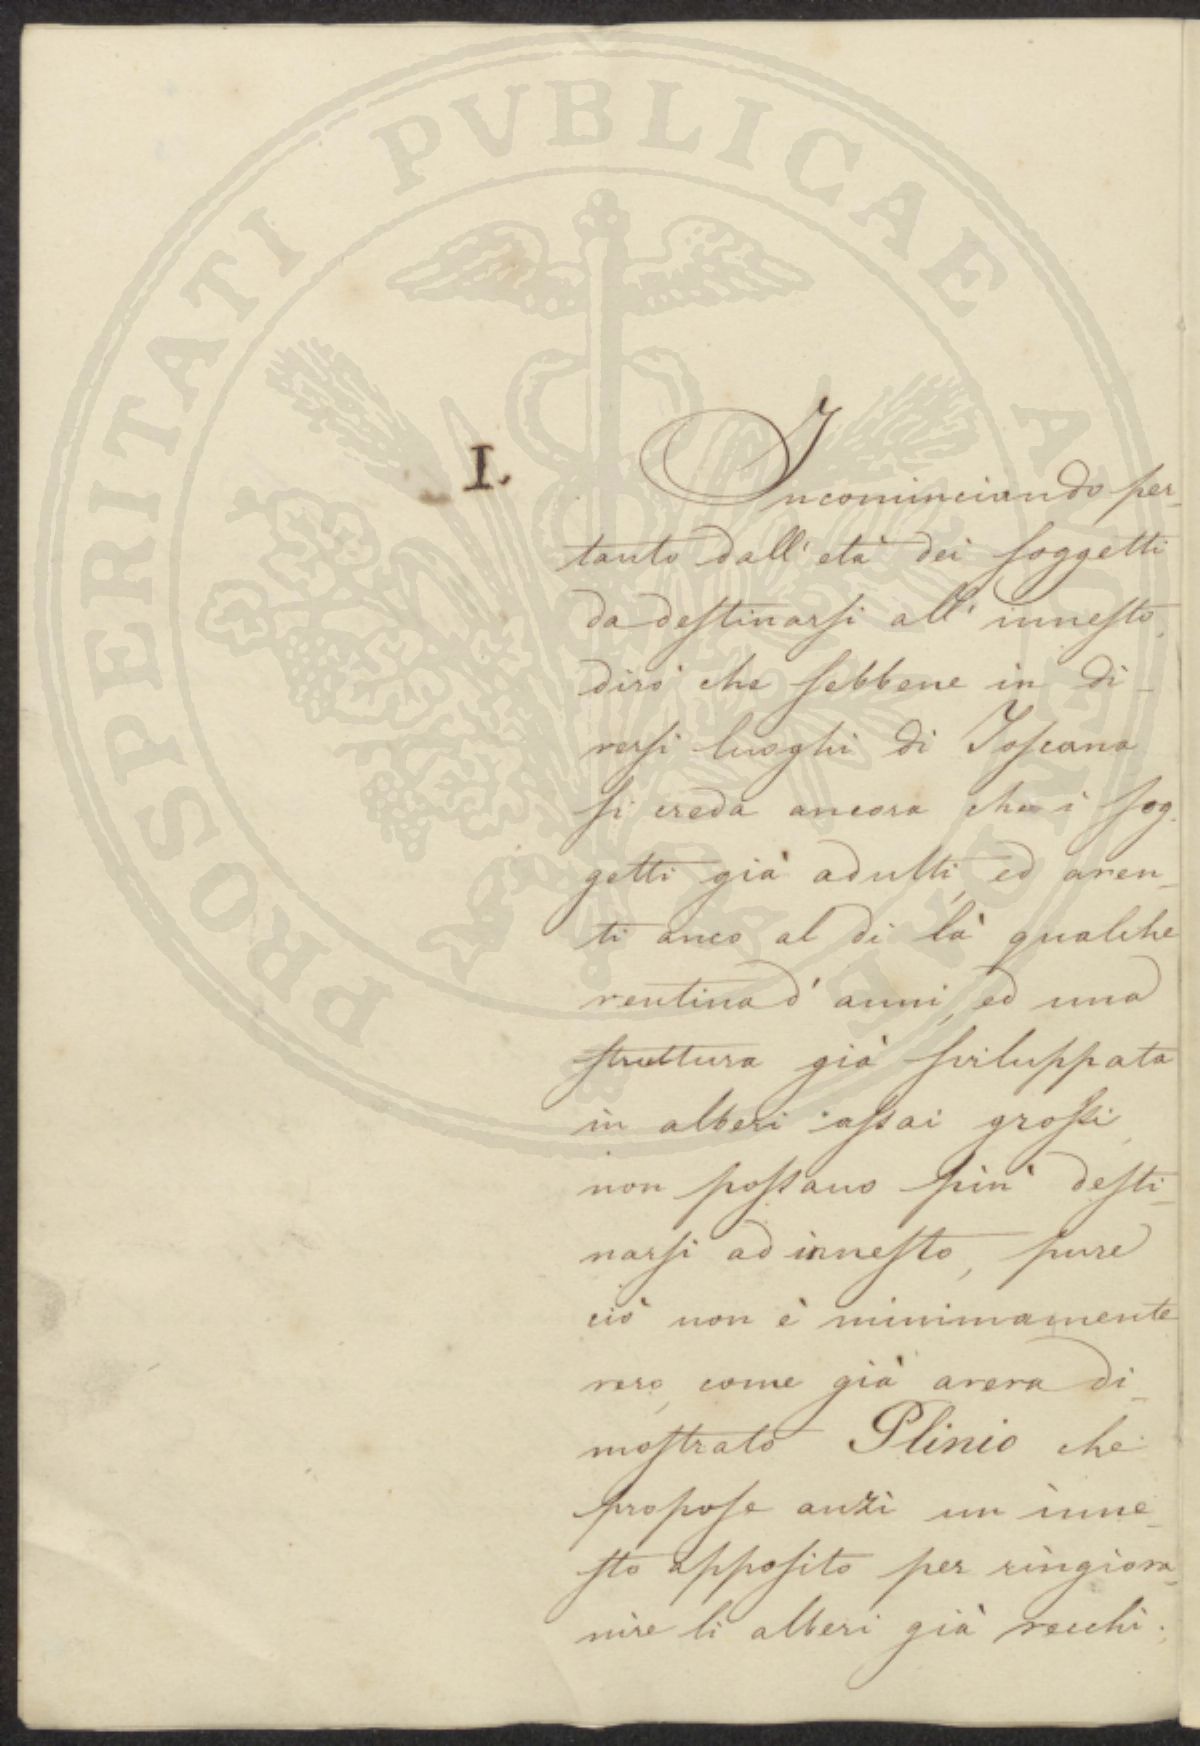 PROSPERITATI PUBLICAE AUGENDAE
I.
Incominciando per-
tanto dall' età dei soggetti
da destinarsi all' innesto,
dirò che sebbene in di-
versi luoghi di Toscana
si creda ancora che i sog-
getti già adulti, ed aven-
ti anco al di là qualche
ventina d' anni, ed una
struttura già sviluppata
in alberi assai grossi,
non possano più desti-
narsi ad innesto, pure
ciò non è minimamente
vero, come già aveva di-
mostrato Plinio che
propose anzi un inne-
sto apposito per ringiova-
nire li alberi già vecchi.